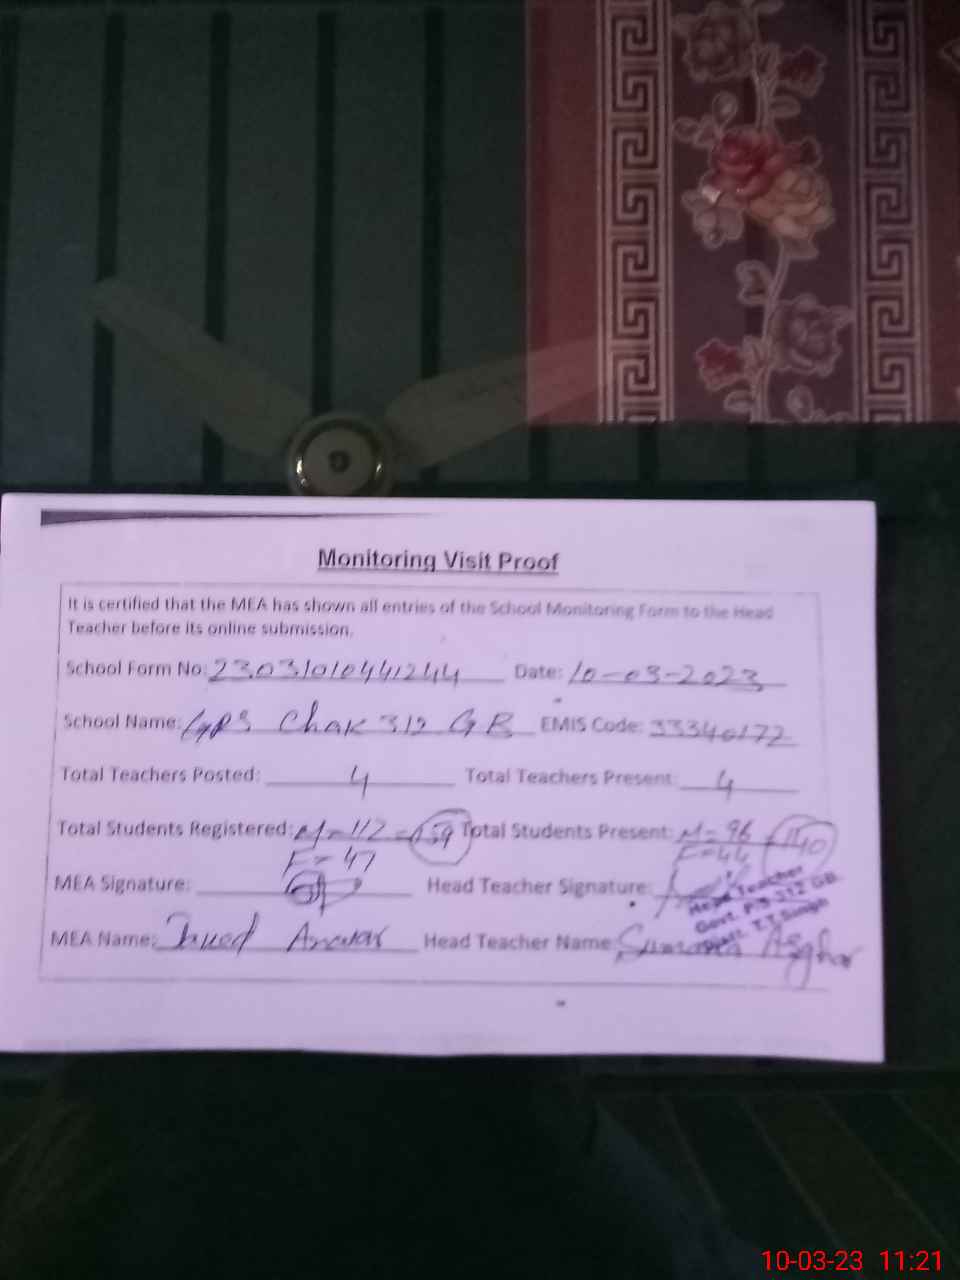 Monitoring Visit Proof
It is certified that the MEA has shown all entries of the School Monitoring Form to the Head
Teacher before its online submission.
School Form No: 23031010441244 Date: 10-03-2023
School Name: GPS Chak 312 GB EMIS Code: 33340172
Total Teachers Posted: 4 Total Teachers Present: 4
Total Students Registered: M=112 =159 Total Students Present: M=96 =140
F=47 F=44
MEA Signature: Head Teacher Signature:
Head Teacher
Govt. P/S 312 GB
Distt. T.T.Singh
MEA Name: Javed Anwar Head Teacher Name: Asghar
10-03-23 11:21